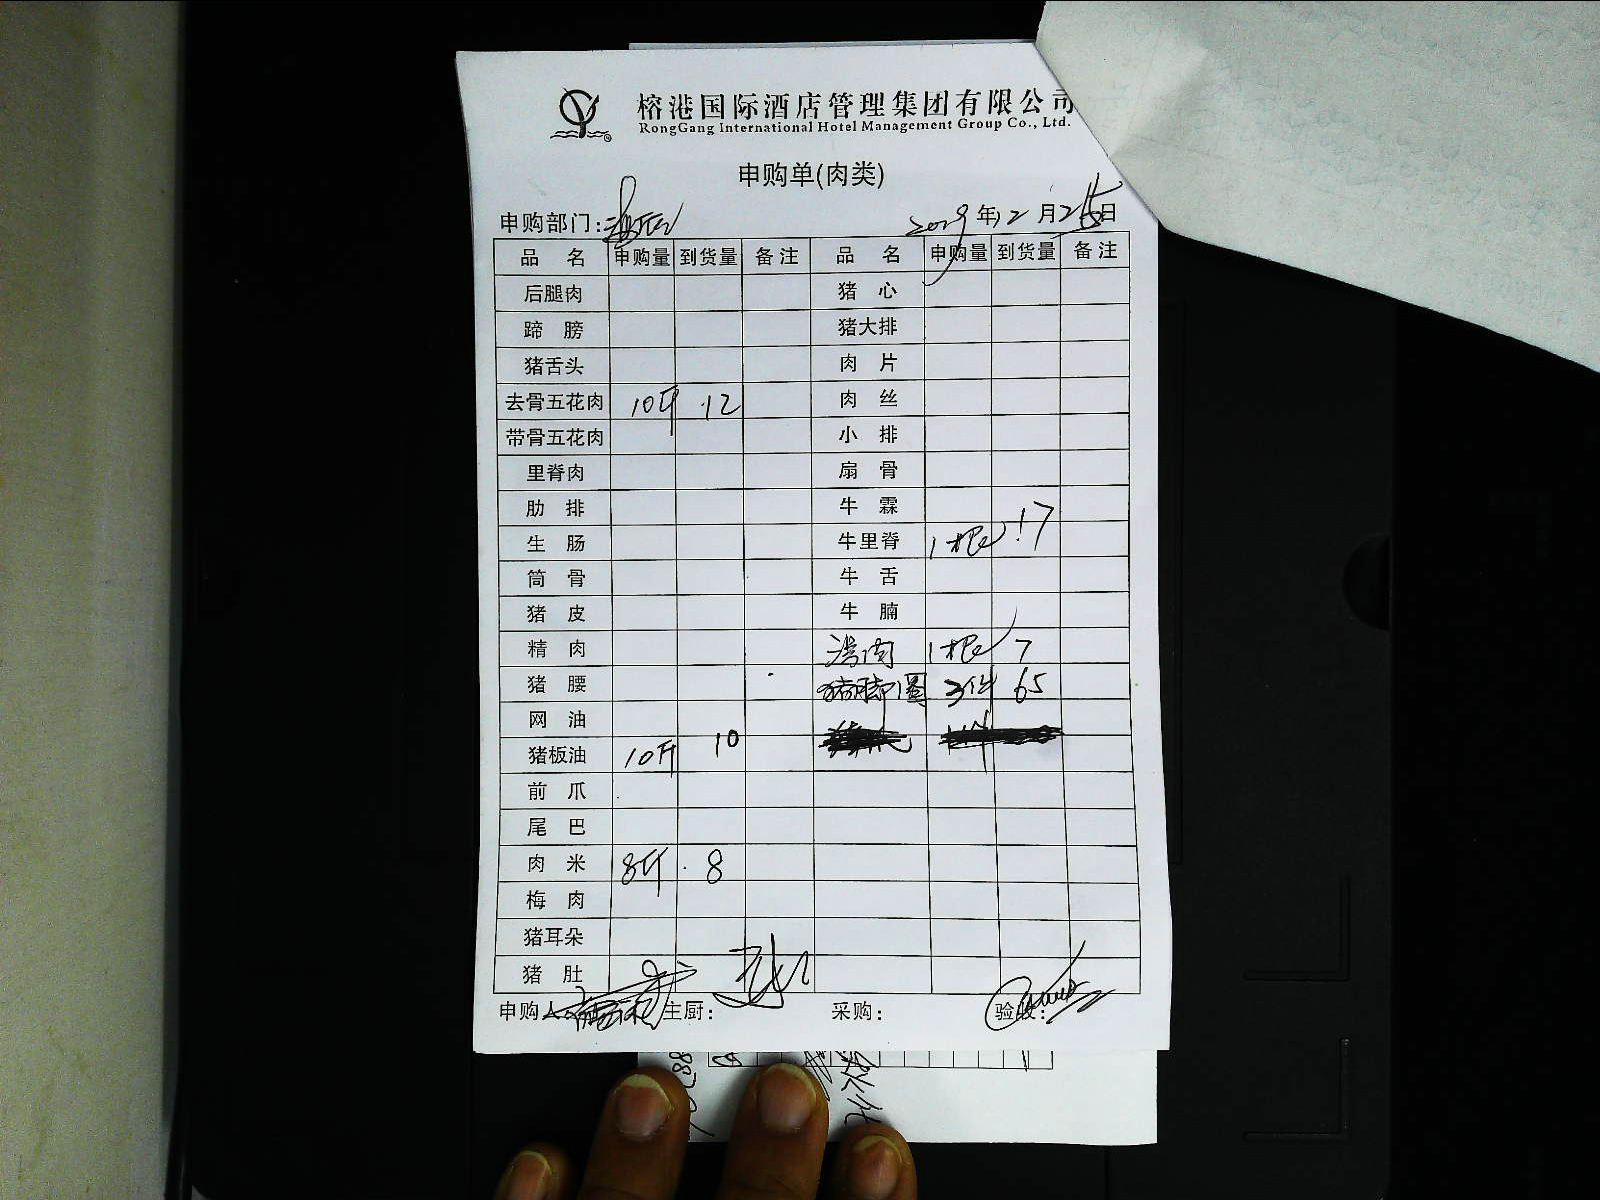 榕港国际酒店管理集团有限公司
RongGang International Hotel Management Group Co., Ltd.
申购单(肉类)
申购部门: 2009年12月25日
品 名 申购量 到货量 备注 品 名 申购量 到货量 备注
后腿肉 猪 心
蹄 膀 猪大排
猪舌头 肉 片
去骨五花肉 10斤 12 肉 丝
带骨五花肉 小 排
里脊肉 扇 骨
肋 排 牛 霖
生 肠 牛里脊 1根 17
筒 骨 牛 舌
猪 皮 牛 腩
精 肉 湾肉 1根 7
猪 腰 猪脚圈 3件 65
网 油
猪板油 10斤 10
前 爪
尾 巴
肉 米 8斤 8
梅 肉
猪耳朵
猪 肚
申购人 主厨: 采购: 验收: